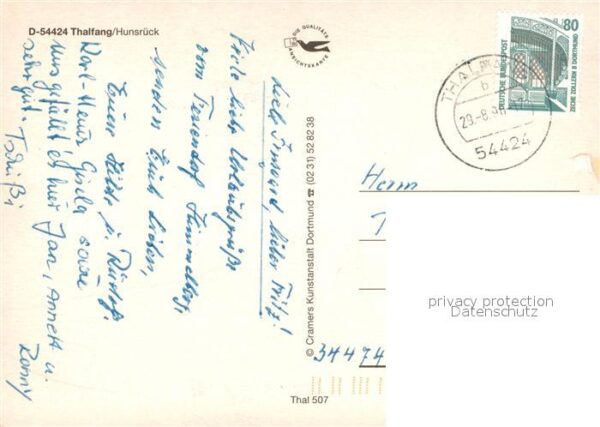 D-54424 Thalfang/Hunsrück
DIE QUALITÄTS
ANSICHTSKARTE
Liebe Irmgard, lieber Fritz!
Viele liebe Urlaubsgrüße
vom Feriendorf Himmelberg,
senden Euch Lieben,
Eure Hilde u. Rudolf.
Karl-Heinz Gisela sowie
uns gefällt es hier Jan, Annett u.
sehr gut. Tschüßi Ronny
© Cramers Kunstanstalt Dortmund ☎ (02 31) 52 82 38
Thal 507
80
DEUTSCHE BUNDESPOST
ZECHE ZOLLERN II DORTMUND
THALFANG
b
54424
Herrn
34474
privacy protection
Datenschutz